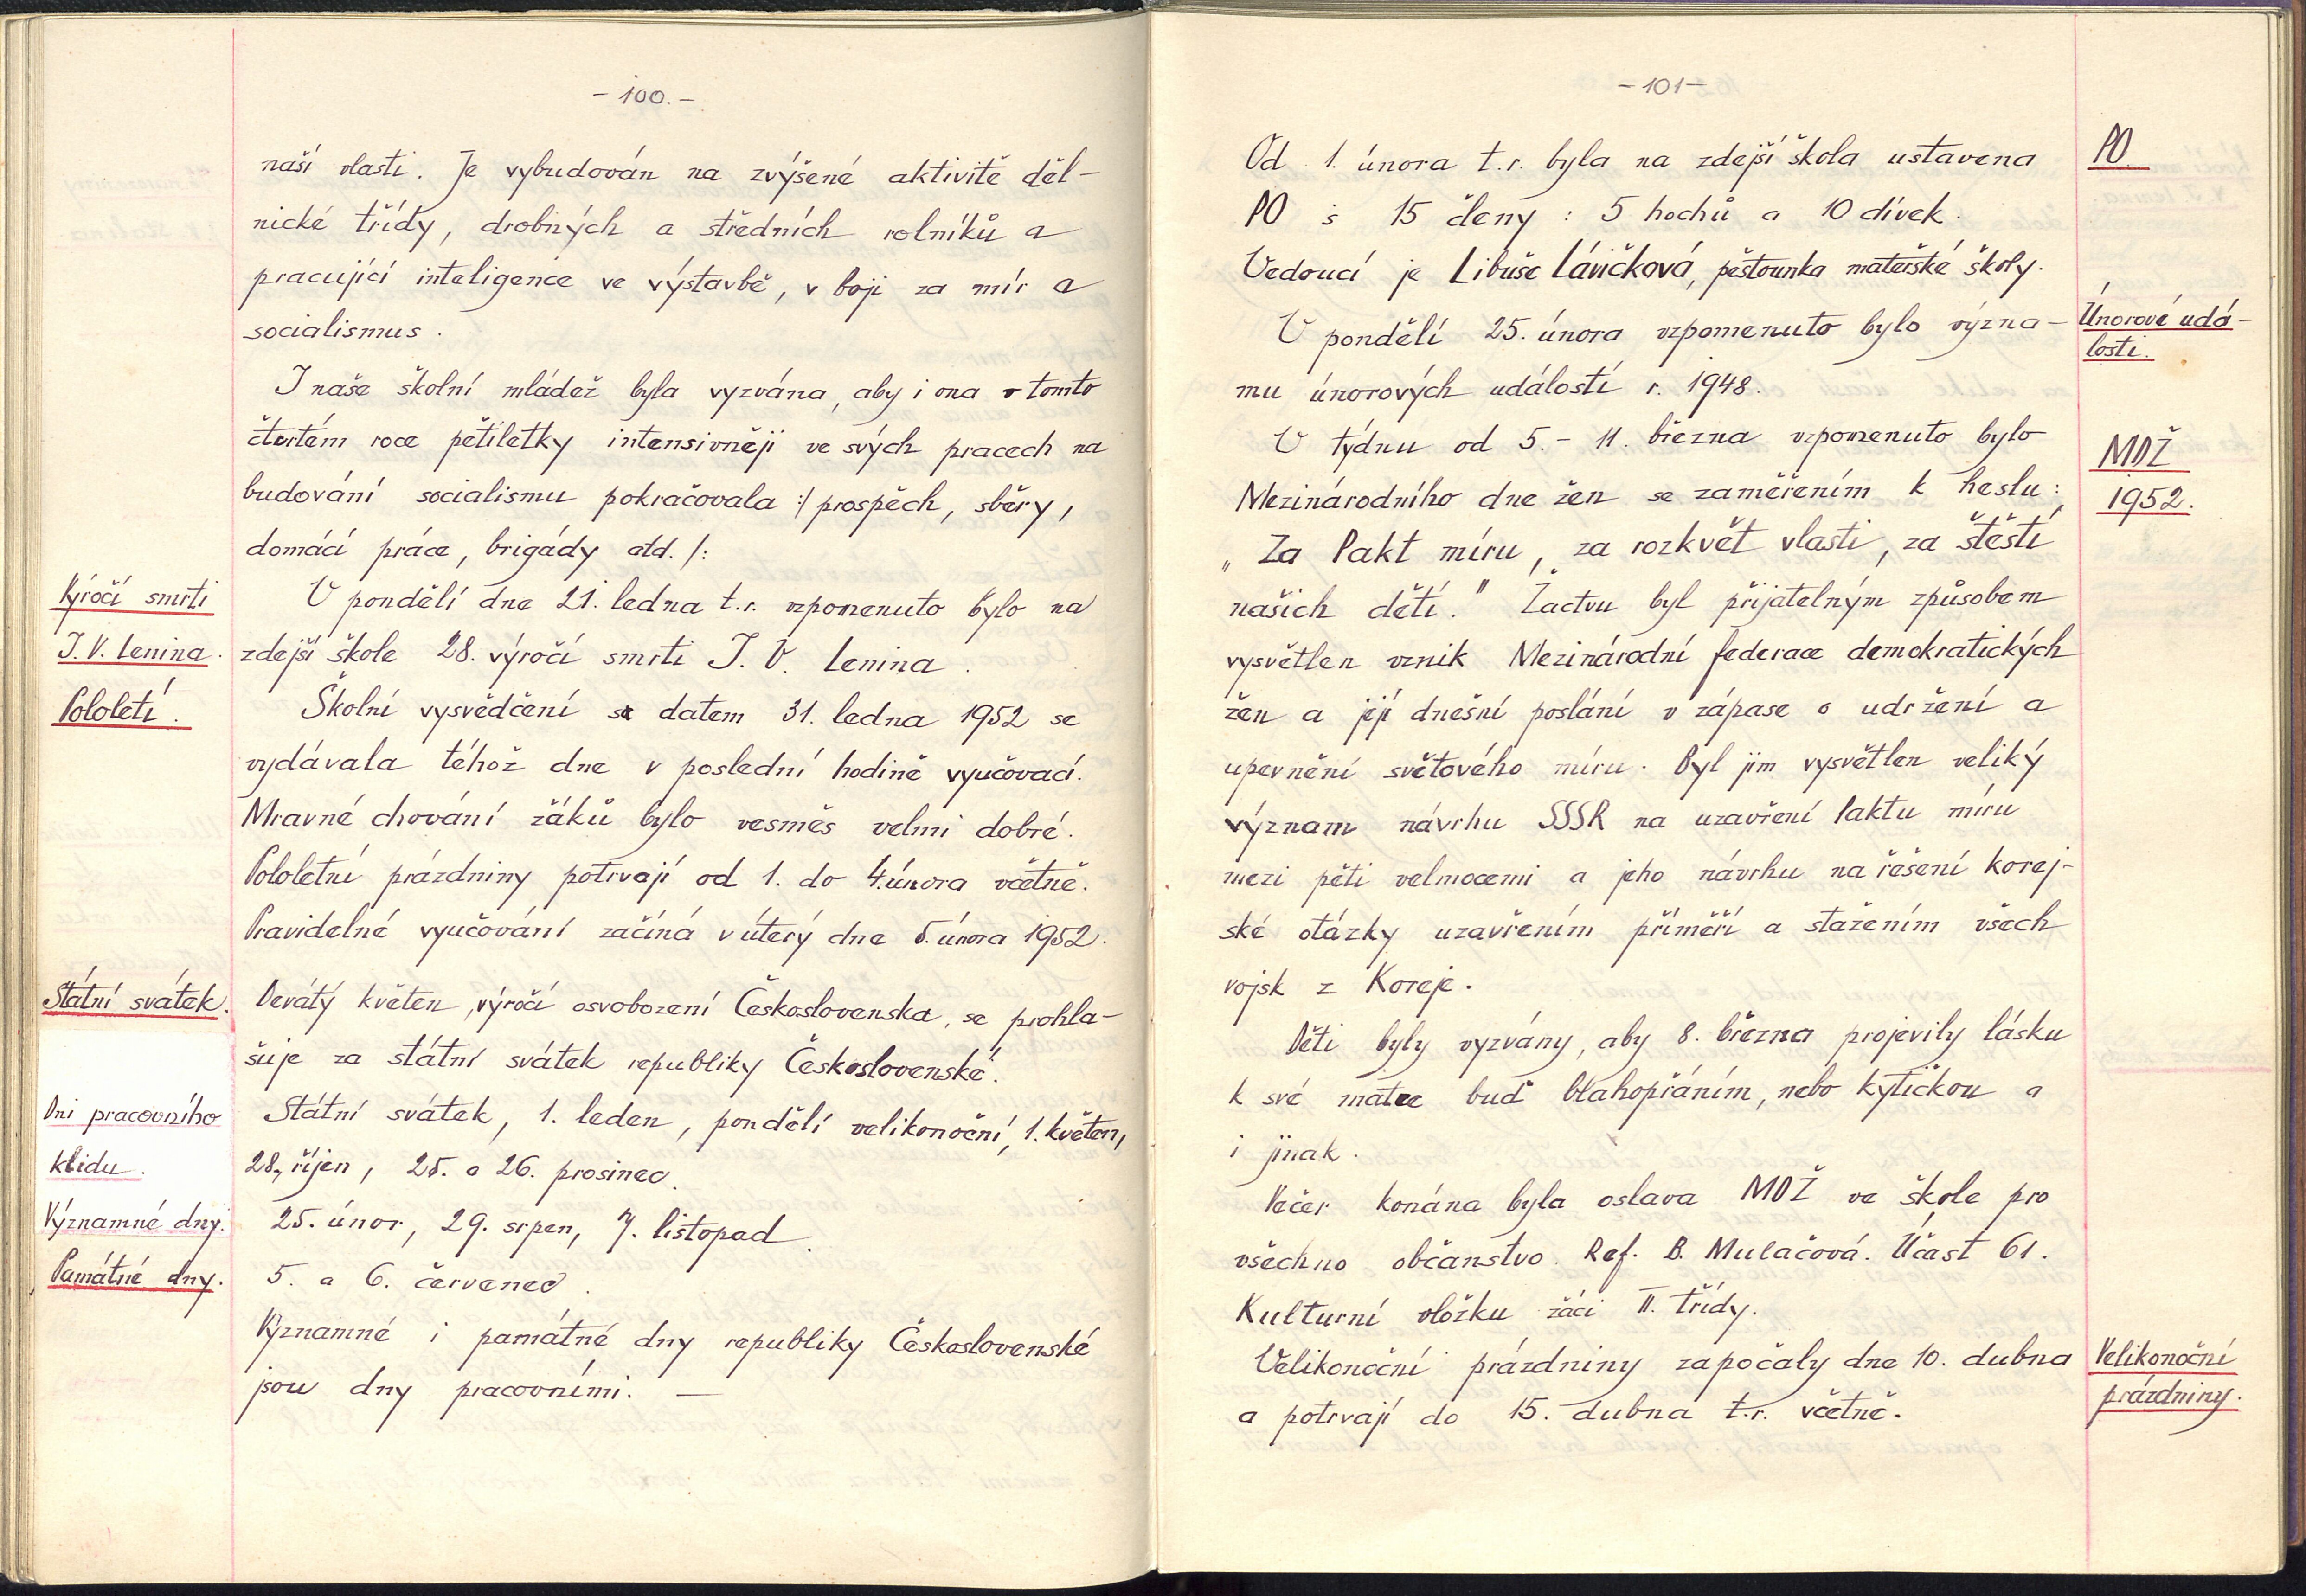 - 100. -
naší vlasti. Je vybudován na zvýšené aktivitě děl-
nické třídy, drobných a středních rolníků a
pracující inteligence ve výstavbě, v boji za mír a
socialismus.
I naše školní mládež byla vyzvána, aby i ona v tomto
čtvrtém roce pětiletky intensivněji ve svých pracech na
budování socialismu pokračovala :/ prospěch, sběry,
domácí práce, brigády atd. /:
Výročí smrti
J. V. Lenina.
V pondělí dne 21. ledna t.r. vzpomenuto bylo na
zdejší škole 28. výročí smrti J. V. Lenina.
Pololetí.
Školní vysvědčení s datem 31. ledna 1952 se
vydávala téhož dne v poslední hodině vyučovací.
Mravné chování žáků bylo vesměs velmi dobré.
Pololetní prázdniny potrvají od 1. do 4. února včetně.
Pravidelné vyučování začíná v úterý dne 5. února 1952.
Státní svátek.
Devátý květen, výročí osvobození Československa, se prohla-
šuje za státní svátek republiky Československé.
Dni pracovního
klidu.
Státní svátek, 1. leden, pondělí velikonoční, 1. květen,
28. říjen, 25. a 26. prosinec.
Významné dny.
25. únor, 29. srpen, 7. listopad.
Památné dny.
5. a 6. červenec.
Významné i památné dny republiky Československé
jsou dny pracovními. —
- 101 -
Od 1. února t.r. byla na zdejší škola ustavena
PO s 15 členy : 5 hochů a 10 dívek.
Vedoucí je Libuše Lávičková, pěstounka mateřské školy.
PO
V pondělí 25. února vzpomenuto bylo význa-
mu únorových událostí r. 1948.
Únorové udá-
losti.
V týdnu od 5. - 11. března vzpomenuto bylo
Mezinárodního dne žen se zaměřením k heslu:
„Za Pakt míru, za rozkvět vlasti, za štěstí
našich dětí." Žactvu byl přijatelným způsobem
vysvětlen vznik Mezinárodní federace demokratických
žen a její dnešní poslání v zápase o udržení a
upevnění světového míru. Byl jim vysvětlen veliký
význam návrhu SSSR na uzavření Paktu míru
mezi pěti velmocemi a jeho návrhu na řešení korej-
ské otázky uzavřením příměří a stažením všech
vojsk z Koreje.
MDŽ
1952.
Děti byly vyzvány, aby 8. března projevily lásku
k své matce buď blahopřáním, nebo kytičkou a
i jinak.
Večer konána byla oslava MDŽ ve škole pro
všechno občanstvo. Ref. B. Mulačová. Účast 61.
Kulturní vložku žáci II. třídy.
Velikonoční prázdniny započaly dne 10. dubna
a potrvají do 15. dubna t.r. včetně.
Velikonoční
prázdniny.